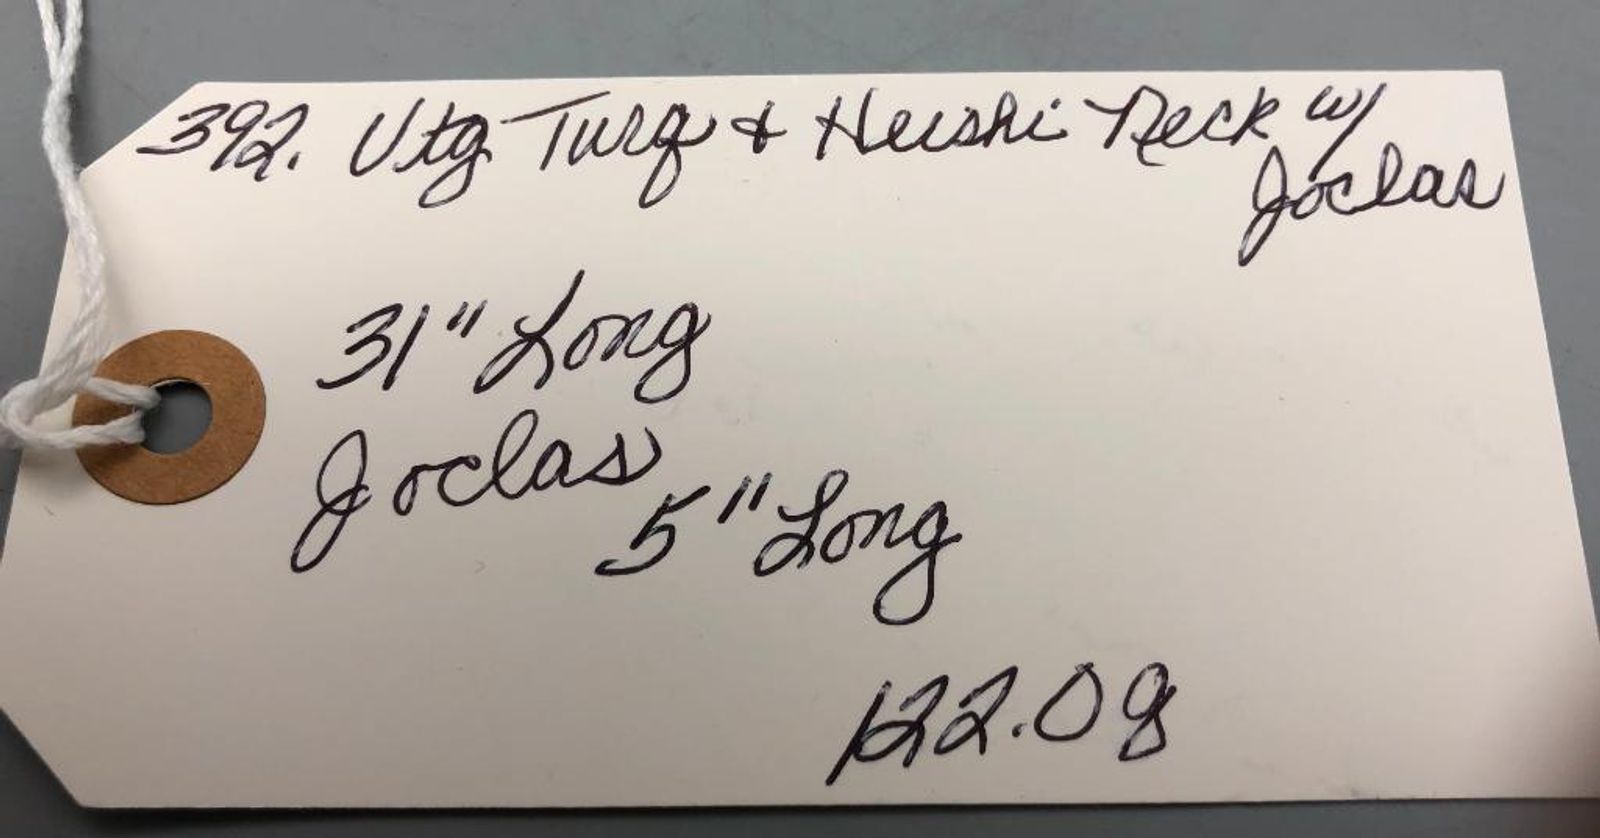 392. Vtg Turq & Heishi Neck w/
Joclas
31" Long
Joclas
5" Long
122.0g